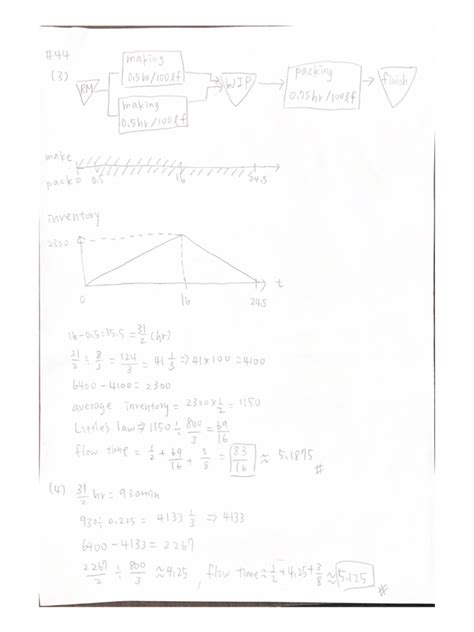 #44
(3) RM making 0.5hr/100lf making 0.5hr/100lf WIP packing 0.75hr/100lf finish
make
pack 0 0.5 16 24.5
inventory
2300
0 16 24.5 t
16-0.5=15.5=31/2 (hr)
31/2 ÷ 8/3 = 124/3 = 41 1/3 ⇒ 41×100=4100
6400-4100=2300
average inventory = 2300×1/2 = 1150
Littles law ⇒ 1150÷800/3=69/16
flow time = 1/2 + 69/16 + 3/8 = 83/16 ≈ 5.1875 #
(4) 31/2 hr = 930min
930÷0.225 = 4133 1/3 ⇒ 4133
6400-4133=2267
2267/2 ÷ 800/3 ≈ 4.25, flow time ≈ 1/2+4.25+3/8 ≈ 5.125 #